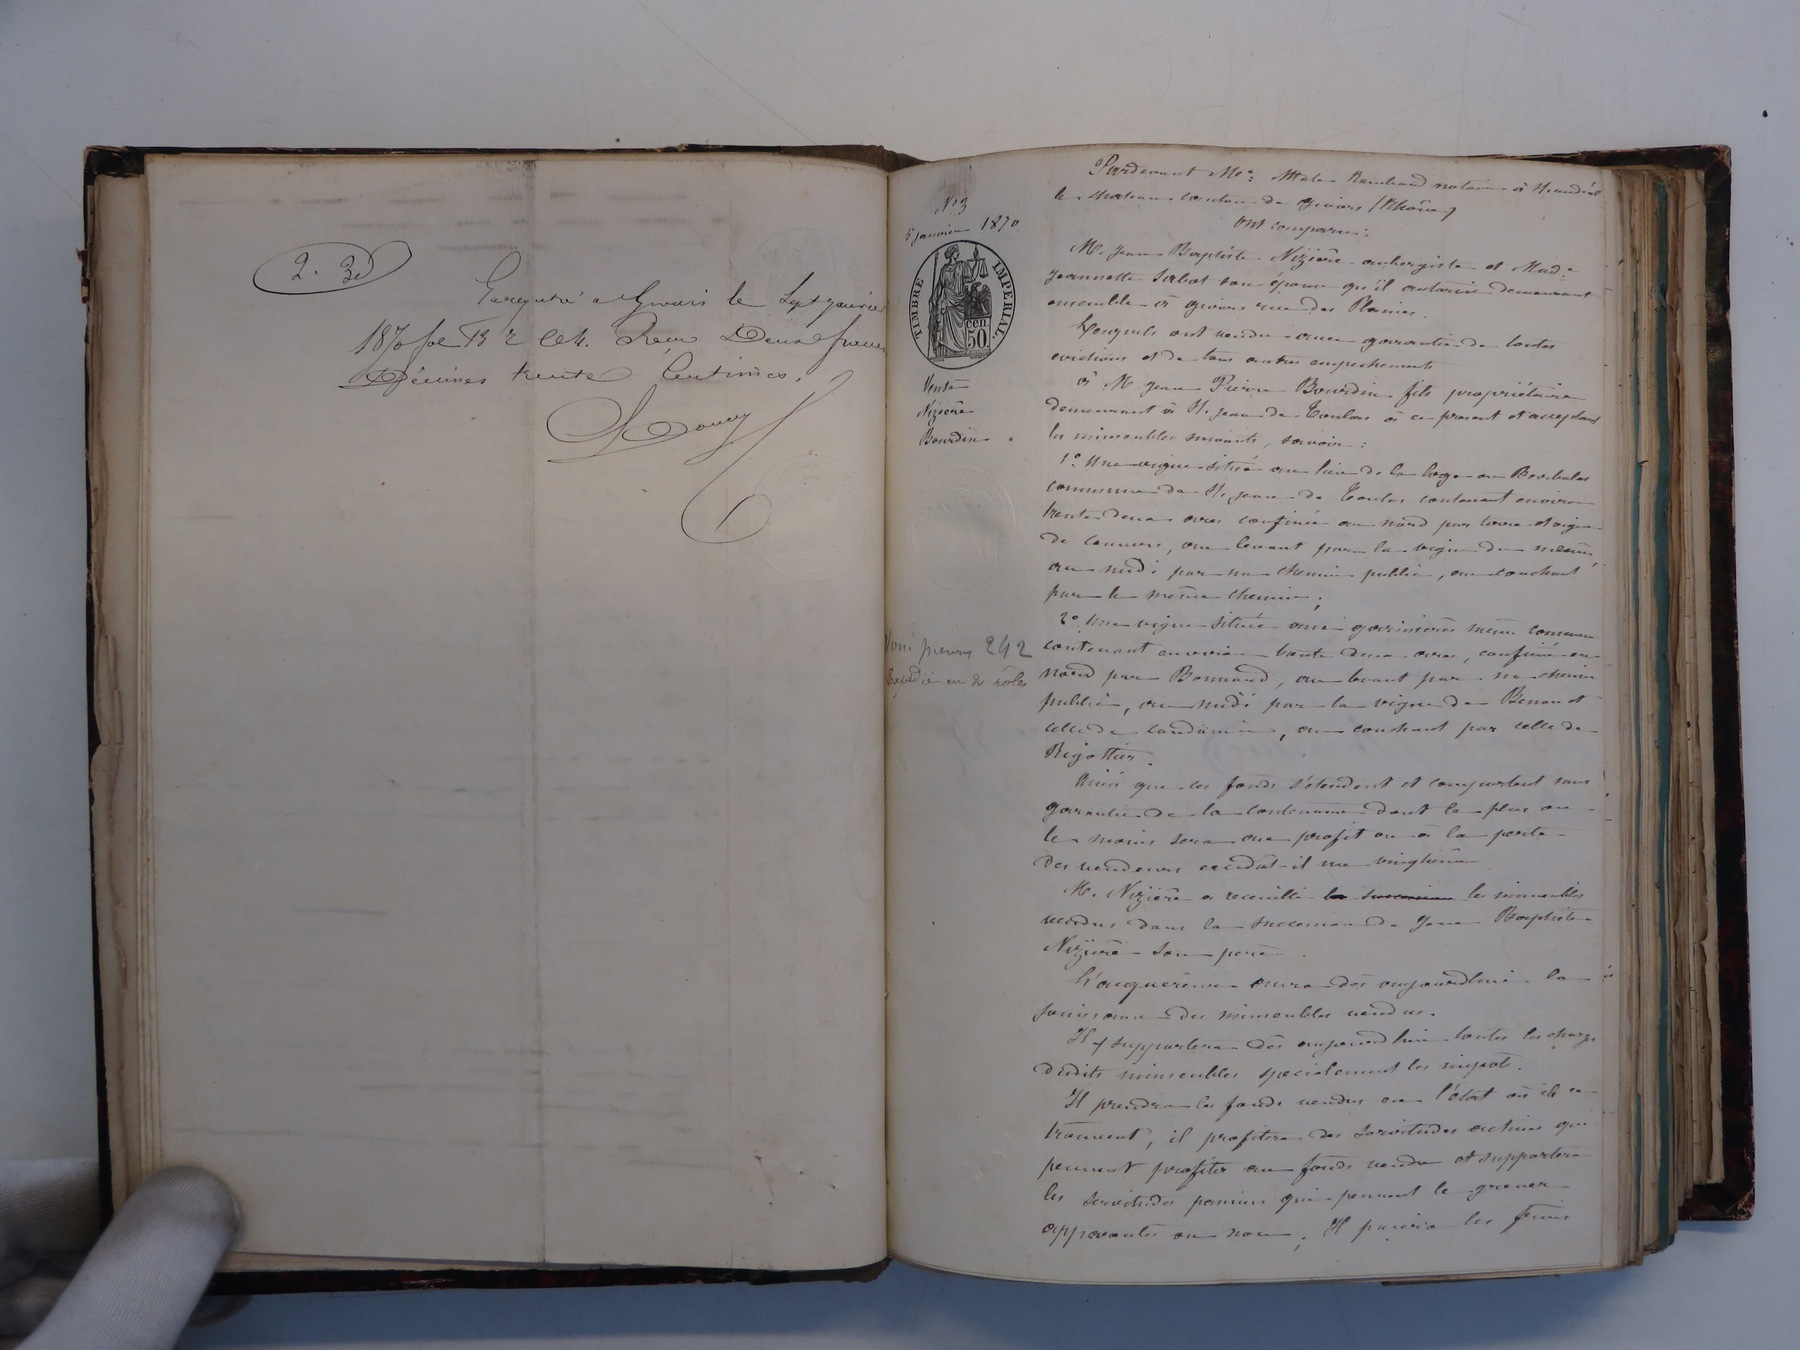 2. 3d
Enregistré à Givors le Sept janvier
1870 fol 13 r c 4. Reçu Deux francs
Décimes trente Centimes.
N° 3
5 janvier 1870
TIMBRE IMPERIAL
50 cen
Vente
Nizière
Bourdin
242
Expédié en rôles
Pardevant Me notaire à St andéol
le château canton de givors (Rhône)
ont comparu:
M. Jean Baptiste Nizière aubergiste et Made
jeannette Sabot son épouse qu'il autorise demeurant
ensemble à givors rue des Plaines.
Lesquels ont vendu avec garantie de toutes
evictions et de tous autres empechements
à M jean Pierre Bourdin fils propriétaire
demeurant à St jean de Toulas à ce présent et acceptant
les immeubles suivants, savoir:
1° Une vigne située au lieu de la loge ou
commune de St jean de Toulas contenant environ
trente deux ares confinée au nord par terre et vigne
de, au levant par la vigne du même,
au midi par un chemin public, au couchant
par le même chemin;
2° Une vigne située aux garinières même commune
contenant environ trente deux ares, confinée au
nord par Bonnand, au levant par un chemin
public, au midi par la vigne de et
celle de, au couchant par celle de
Rigottier.
Ainsi que ces fonds s'étendent et comportent sans
garantie de la contenance dont le plus ou
le moins sera au profit ou à la perte
des vendeurs excédat-il un vingtième
M. Nizière a recueilli la succession les immeubles
vendus dans la succession de Jean Baptiste
Nizière son père.
L'acquéreur aura dès aujourdhui la
jouissance des immeubles vendus.
Il supportera dès aujourdhui toutes les charges
desdits immeubles specialement les impot.
Il prendra les fonds vendus en l'état où ils se
trouvent, il profitera des servitudes actives qui
peuvent profiter au fonds vendu et supportera
les servitudes passives qui peuvent le grever
apparentes ou non; Il paiera les frais